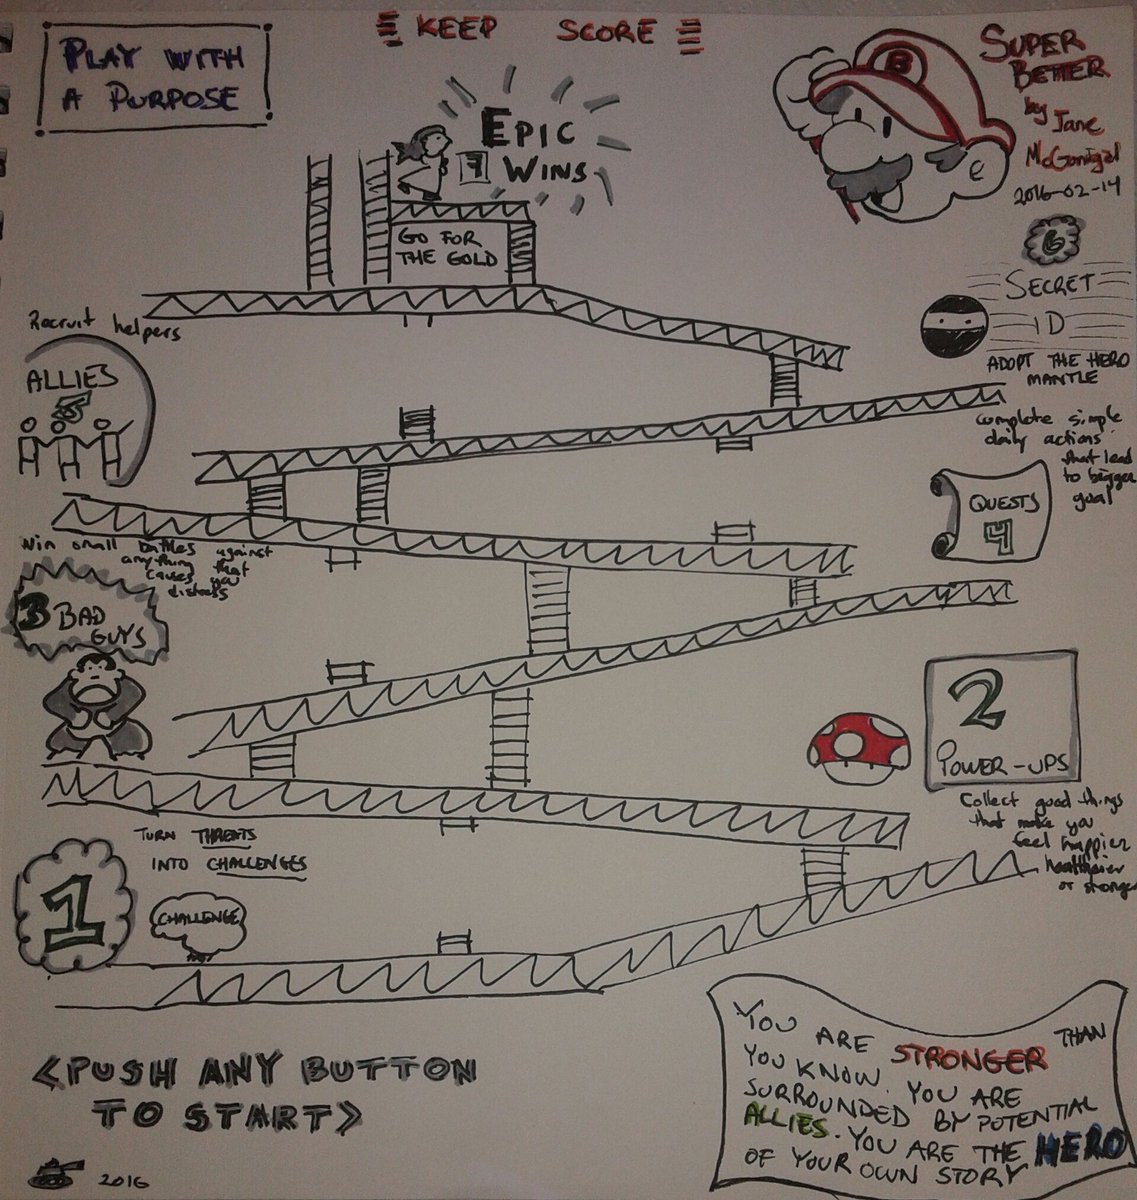 KEEP SCORE
PLAY WITH
A PURPOSE
SUPER
BETTER
by Jane
McGonigal
2016-02-14
B
EPIC
WINS
7
GO FOR
THE GOLD
6
SECRET
ID
ADOPT THE HERO
MANTLE
Recruit helpers
ALLIES
5
complete simple
daily actions
that lead
to bigger
goal
QUESTS
4
Win small battles against
anything
causes that
you
distress
3 BAD
GUYS
2
POWER-UPS
Collect good things
that make you
feel happier
healthier
or stronger
TURN THREATS
INTO CHALLENGES
1
CHALLENGE
<PUSH ANY BUTTON
TO START>
2016
YOU ARE STRONGER THAN
YOU KNOW. YOU ARE
SURROUNDED BY POTENTIAL
ALLIES. YOU ARE THE HERO
OF YOUR OWN STORY